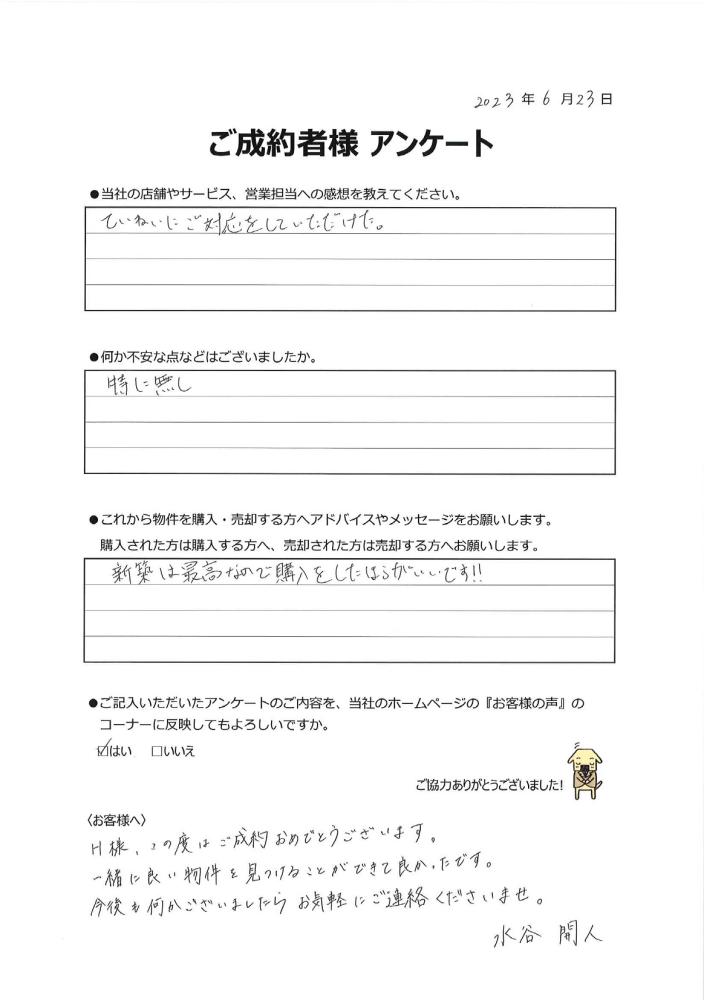 2023年6月23日
ご成約者様 アンケート
●当社の店舗やサービス、営業担当への感想を教えてください。
ていねいにご対応をしていただけた。
●何か不安な点などはございましたか。
特に無し
●これから物件を購入・売却する方へアドバイスやメッセージをお願いします。
購入された方は購入する方へ、売却された方は売却する方へお願いします。
新築は最高なので購入をしたほうがいいです!!
●ご記入いただいたアンケートのご内容を、当社のホームページの『お客様の声』の
コーナーに反映してもよろしいですか。
☑はい □いいえ
ご協力ありがとうございました!
〈お客様へ〉
H様、この度はご成約おめでとうございます。
一緒に良い物件を見つけることができて良かったです。
今後も何かございましたらお気軽にご連絡くださいませ。
水谷 開人